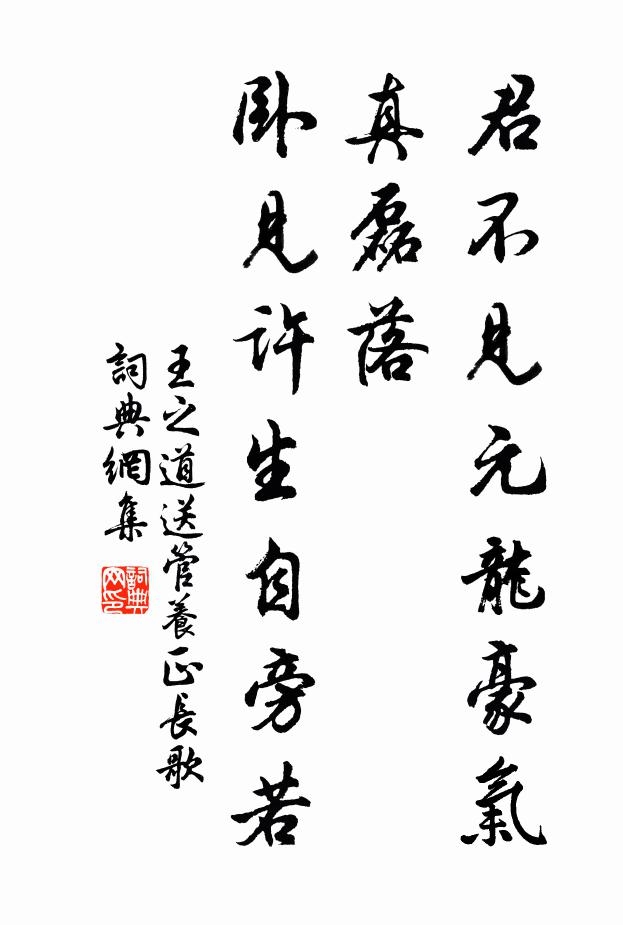 君不見元龍豪氣
真磊落
卧見許生自旁若
王之道送管養正長歌
詞典網集
詞典
网印